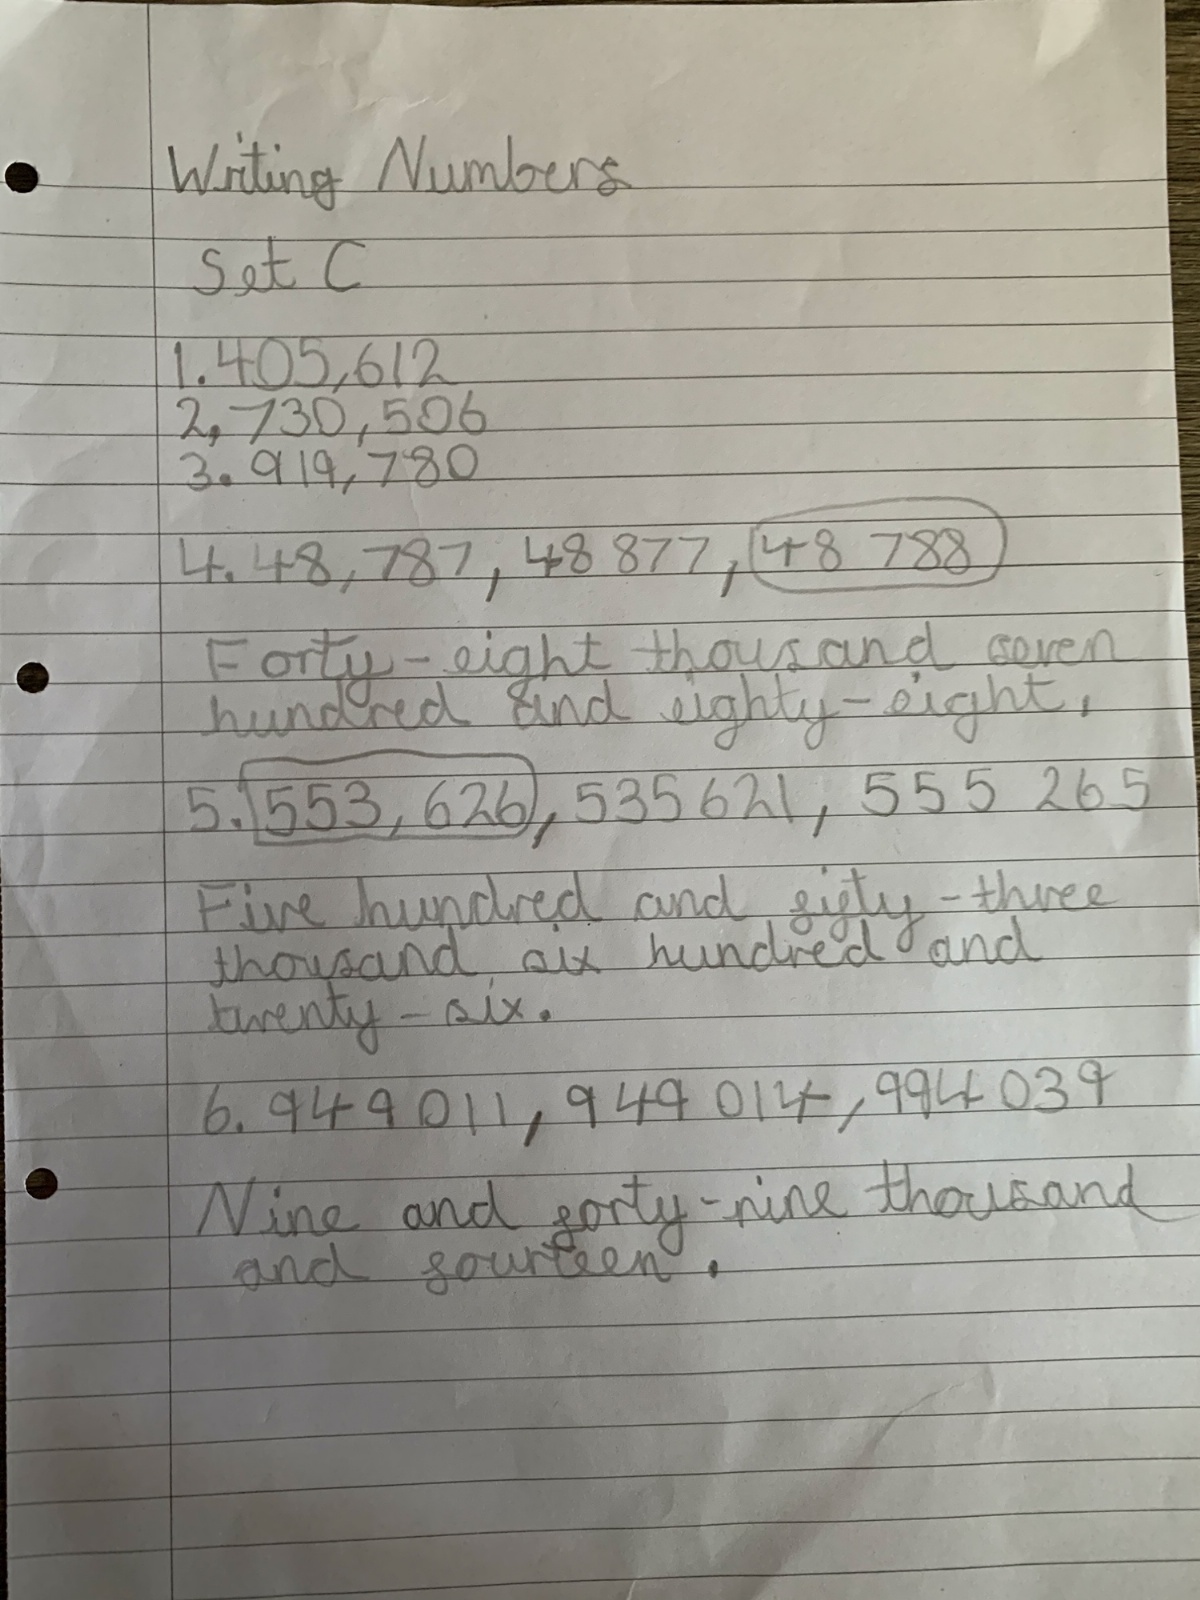 Writing Numbers
Set C
1. 405,612
2, 730,506
3. 919,780
4. 48,787, 48 877, 48 788
Forty-eight thousand seven
hundred and eighty-eight.
5. 553,626, 535 621, 555 265
Five hundred and sixty-three
thousand six hundred and
twenty-six.
6. 949 011, 949 014, 994 039
Nine and forty-nine thousand
and fourteen.